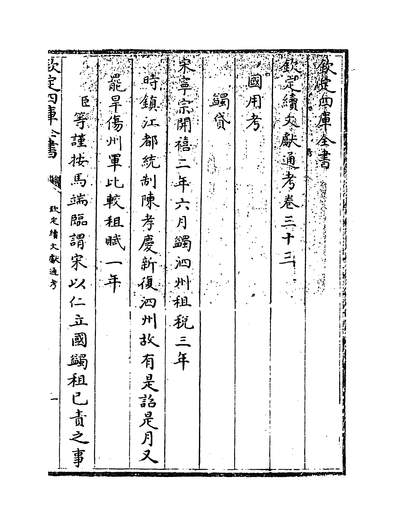 欽定四庫全書
欽定續文獻通考卷三十三
國用考
蠲貸
宋寧宗開禧二年六月蠲泗州租税三年
時鎮江都統制陳孝慶新復泗州故有是詔是月又
罷旱傷州軍比較租賦一年
臣等謹按馬端臨謂宋以仁立國蠲租已責之事
欽定四庫全書
欽定續文獻通考
一